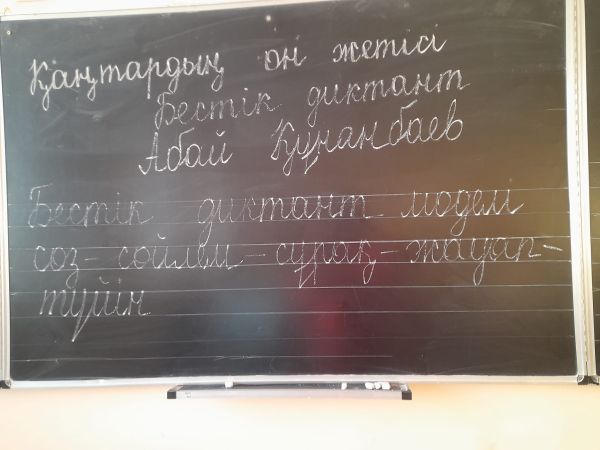 Қаңтардың он жетісі
Бестік диктант
Абай Құнанбаев
Бестік диктант модем
соз - сөйлем - сұрақ - жауап -
түйін